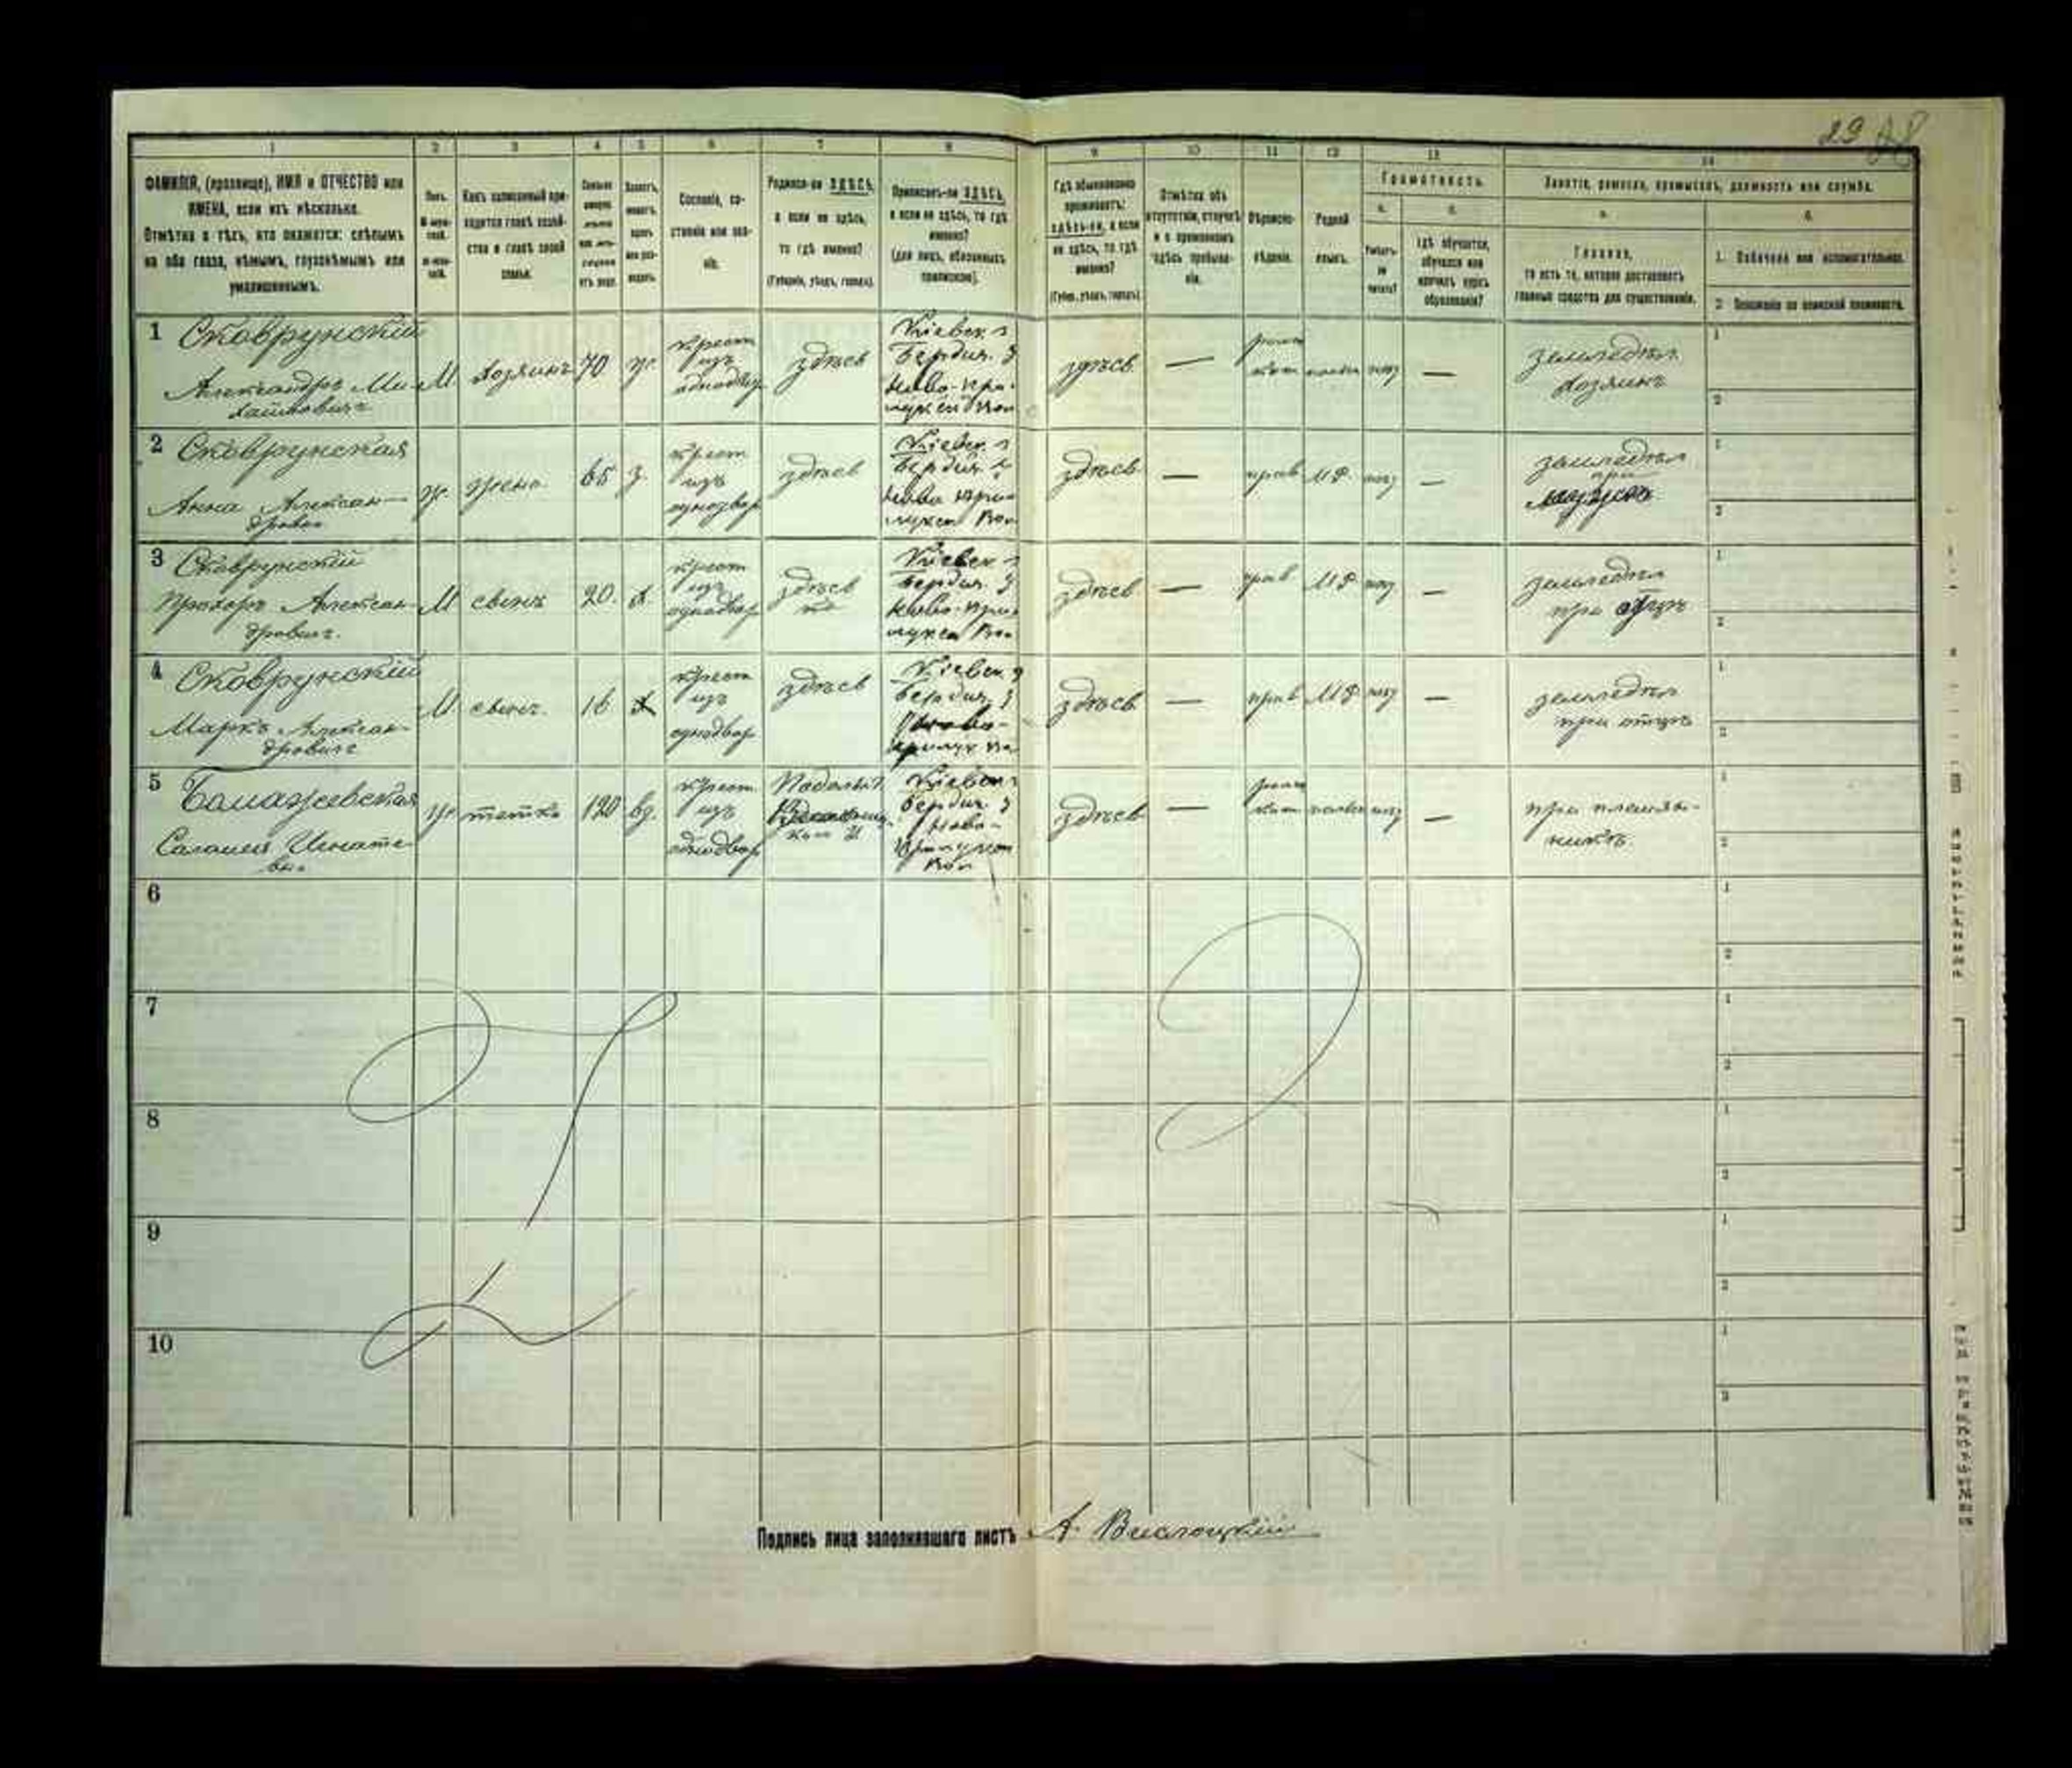 29
1 2 3 4 5 6 7 8 9 10 11 12 13 14
ФАМИЛІЯ, (прозвище), ИМЯ и ОТЧЕСТВО или
ИМЕНА, если ихъ нѣсколько.
Отмѣтка о тѣхъ, кто окажется: слѣпымъ
на оба глаза, нѣмымъ, глухонѣмымъ или
умалишеннымъ.
Полъ.
Какъ записанный при-
ходится главѣ хозяй-
ства и главѣ своей
семьи.
Сословіе, со-
стояніе или зва-
ніе.
Родился-ли ЗДѢСЬ,
а если не здѣсь,
то гдѣ именно?
(Губернія, уѣздъ, городъ).
Приписанъ-ли ЗДѢСЬ,
а если не здѣсь, то гдѣ
именно?
(для лицъ, обязанныхъ
припискою).
Гдѣ обыкновенно
проживаетъ:
здѣсь-ли, а если
не здѣсь, то гдѣ
именно?
(Губер., уѣздъ, городъ).
Отмѣтка объ
отсутствіи, отлучкѣ
и о временномъ
здѣсь пребыва-
ніи.
Вѣроиспо-
вѣданіе.
Родной
языкъ.
Грамотность.
а. б.
Умѣетъ-
ли
читать?
гдѣ обучается,
обучался или
кончилъ курсъ
образованія?
Занятіе, ремесло, промыселъ, должность или служба.
а. б.
Главное,
то есть то, которое доставляетъ
главныя средства для существованія.
1. Побочное или вспомогательное.
2. Положеніе по воинской повинности.
1 Сковрунскій
Александръ Ми-
хайловичъ
М хозяинъ 70 ж.
крест
изъ
однодвор
здѣсь
Кіевск г
Бердич. у
Ново-При-
лукск Вол
здѣсь —
римск
кат
польск
—
земледѣл.
хозяинъ
2 Сковрунская
Анна Алексан-
дровна
ж. жена 65 з.
крест
изъ
однодвор
здѣсь
Кіевск г
Бердич у
Ново При-
лукск Вол
здѣсь — прав МР —
земледѣл
при
мужѣ
3 Сковрунскій
Прохоръ Алексан-
дровичъ.
М свинъ 20. х
крест
изъ
однодвор
здѣсь
Кіевск г
Бердич у
Ново-При-
лукск Вол
здѣсь — прав МР —
земледѣл
при отцѣ
4 Сковрунскій
Маркъ Алексан-
дровичъ
М свинъ. 16 х
крест
изъ
однодвор
здѣсь
Кіевск г
Бердич. у
Ново-
Прилук Во
здѣсь — прав МР —
земледѣл
при отцѣ
5
Саломея Игнатье-
вна
ж тетка 120 вд.
крест
изъ
однодвор
Подольск
Кіевск г
Бердич. у
Ново-
Прилукск
Вол
здѣсь —
римск
кат
польск
—
при племян-
никѣ.
6
7
8
9
10
Подпись лица заполнявшаго листъ А. Вислоцкій